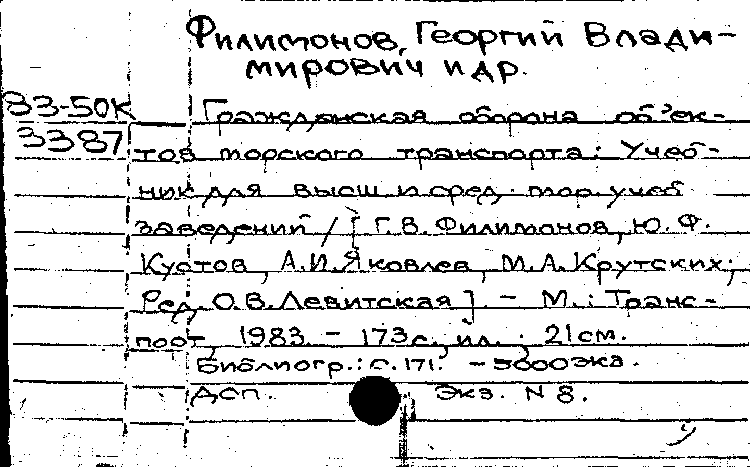 Филимонов, Георгий Влади-
мирович и др.
83-50К
3387
Гражданская оборона объек-
тов морского транспорта: Учеб-
ник для высш и сред. мор. учеб
заведений / [Г.В. Филимонов, Ю.Ф.
Кустов, А.И. Яковлев, М.А. Крутских;
Ред. О.В. Левитская]. - М.: Транс-
порт, 1983. - 173 с., ил.; 21 см.
Библиогр.: с. 171. - 5600 экз.
ДСП. Экз. N 8.
у